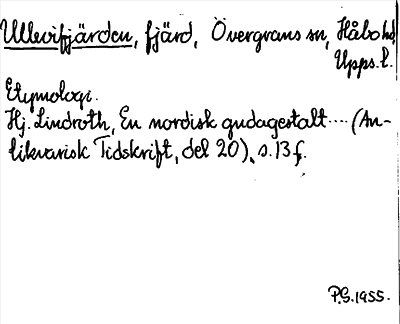 Ullevifjärden, fjärd, Övergrans sn, Håbo hd
Upps. l.
Etymologi.
Hj. Lindroth, En nordisk gudagestalt .... (An-
tikvarisk Tidskrift, del 20), s. 13 f.
P.G. 1955.